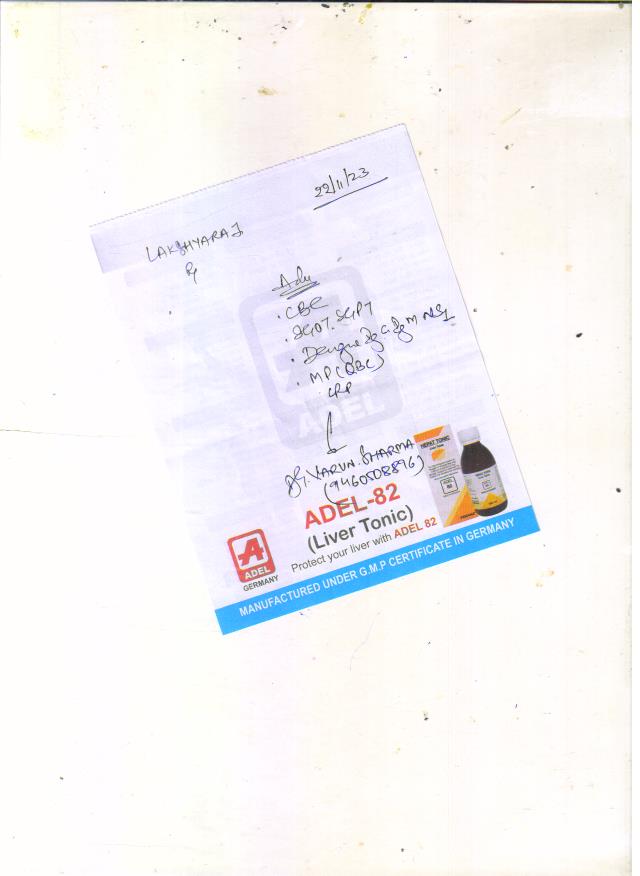 22/11/23
LAKSHYARAJ
Adv
. CBC
. SGOT. SGPT
. Dengue Ig G. Ig M NS1
. MP (QBC)
. CRP
Dr. VARUN. SHARMA
(9460508896)
ADEL
HEPAT TONIC
ADEL-82
(Liver Tonic)
Protect your liver with ADEL 82
A
ADEL
GERMANY
MANUFACTURED UNDER G.M.P CERTIFICATE IN GERMANY